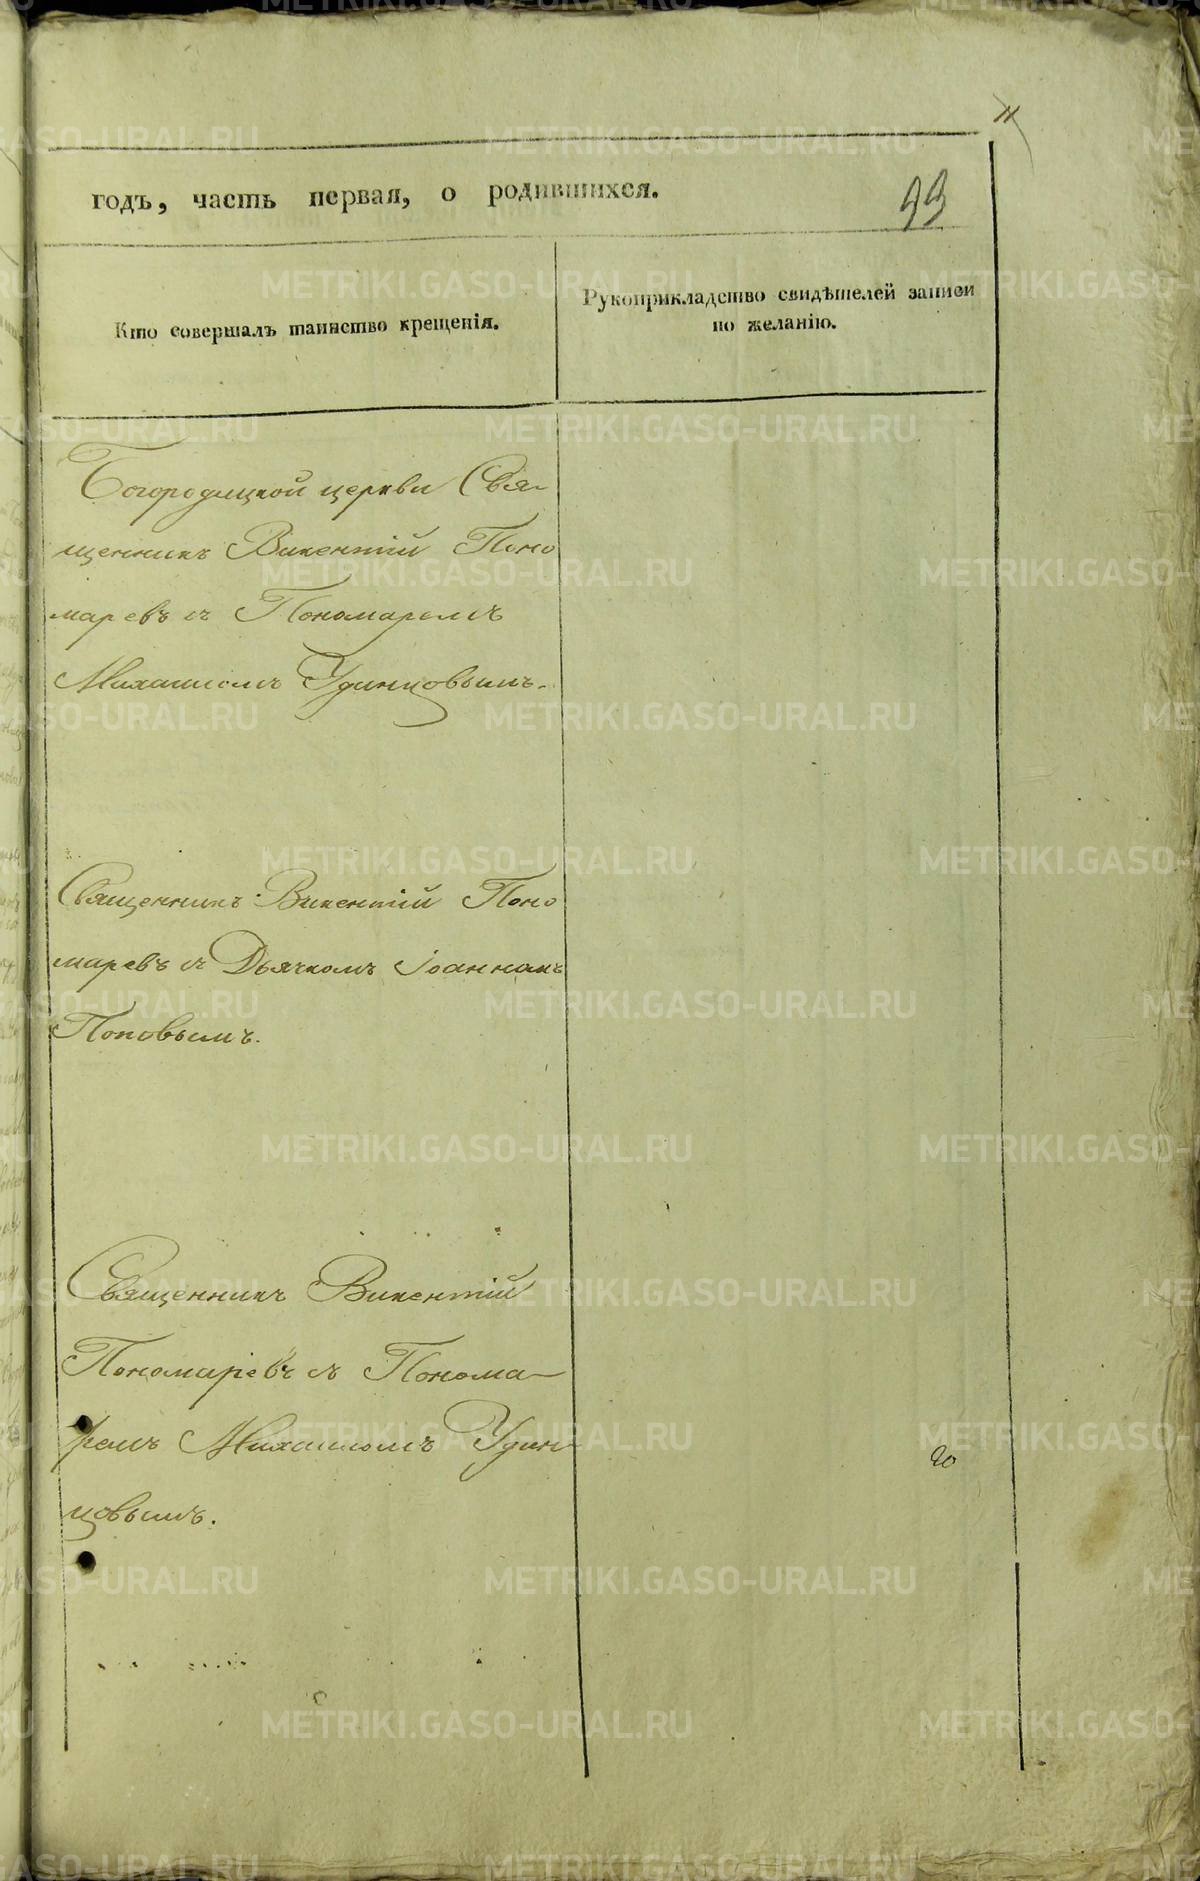 11
годъ, часть первая, о родившихся.
93
Кто совершалъ таинство крещенія.
Рукоприкладство свидѣтелей записи
по желанію.
Богородицкой церкви Свя-
щенникъ Викентій Поно
маревъ съ Пономаремъ
Михаиломъ Удинцовымъ.
Священникъ Викентій Поно
маревъ съ Дьячкомъ Іоанномъ
Поповымъ.
Священникъ Викентій
Пономаревъ съ Понома-
ремъ Михаиломъ Удин-
цовымъ.
20
METRIKI.GASO-URAL.RU